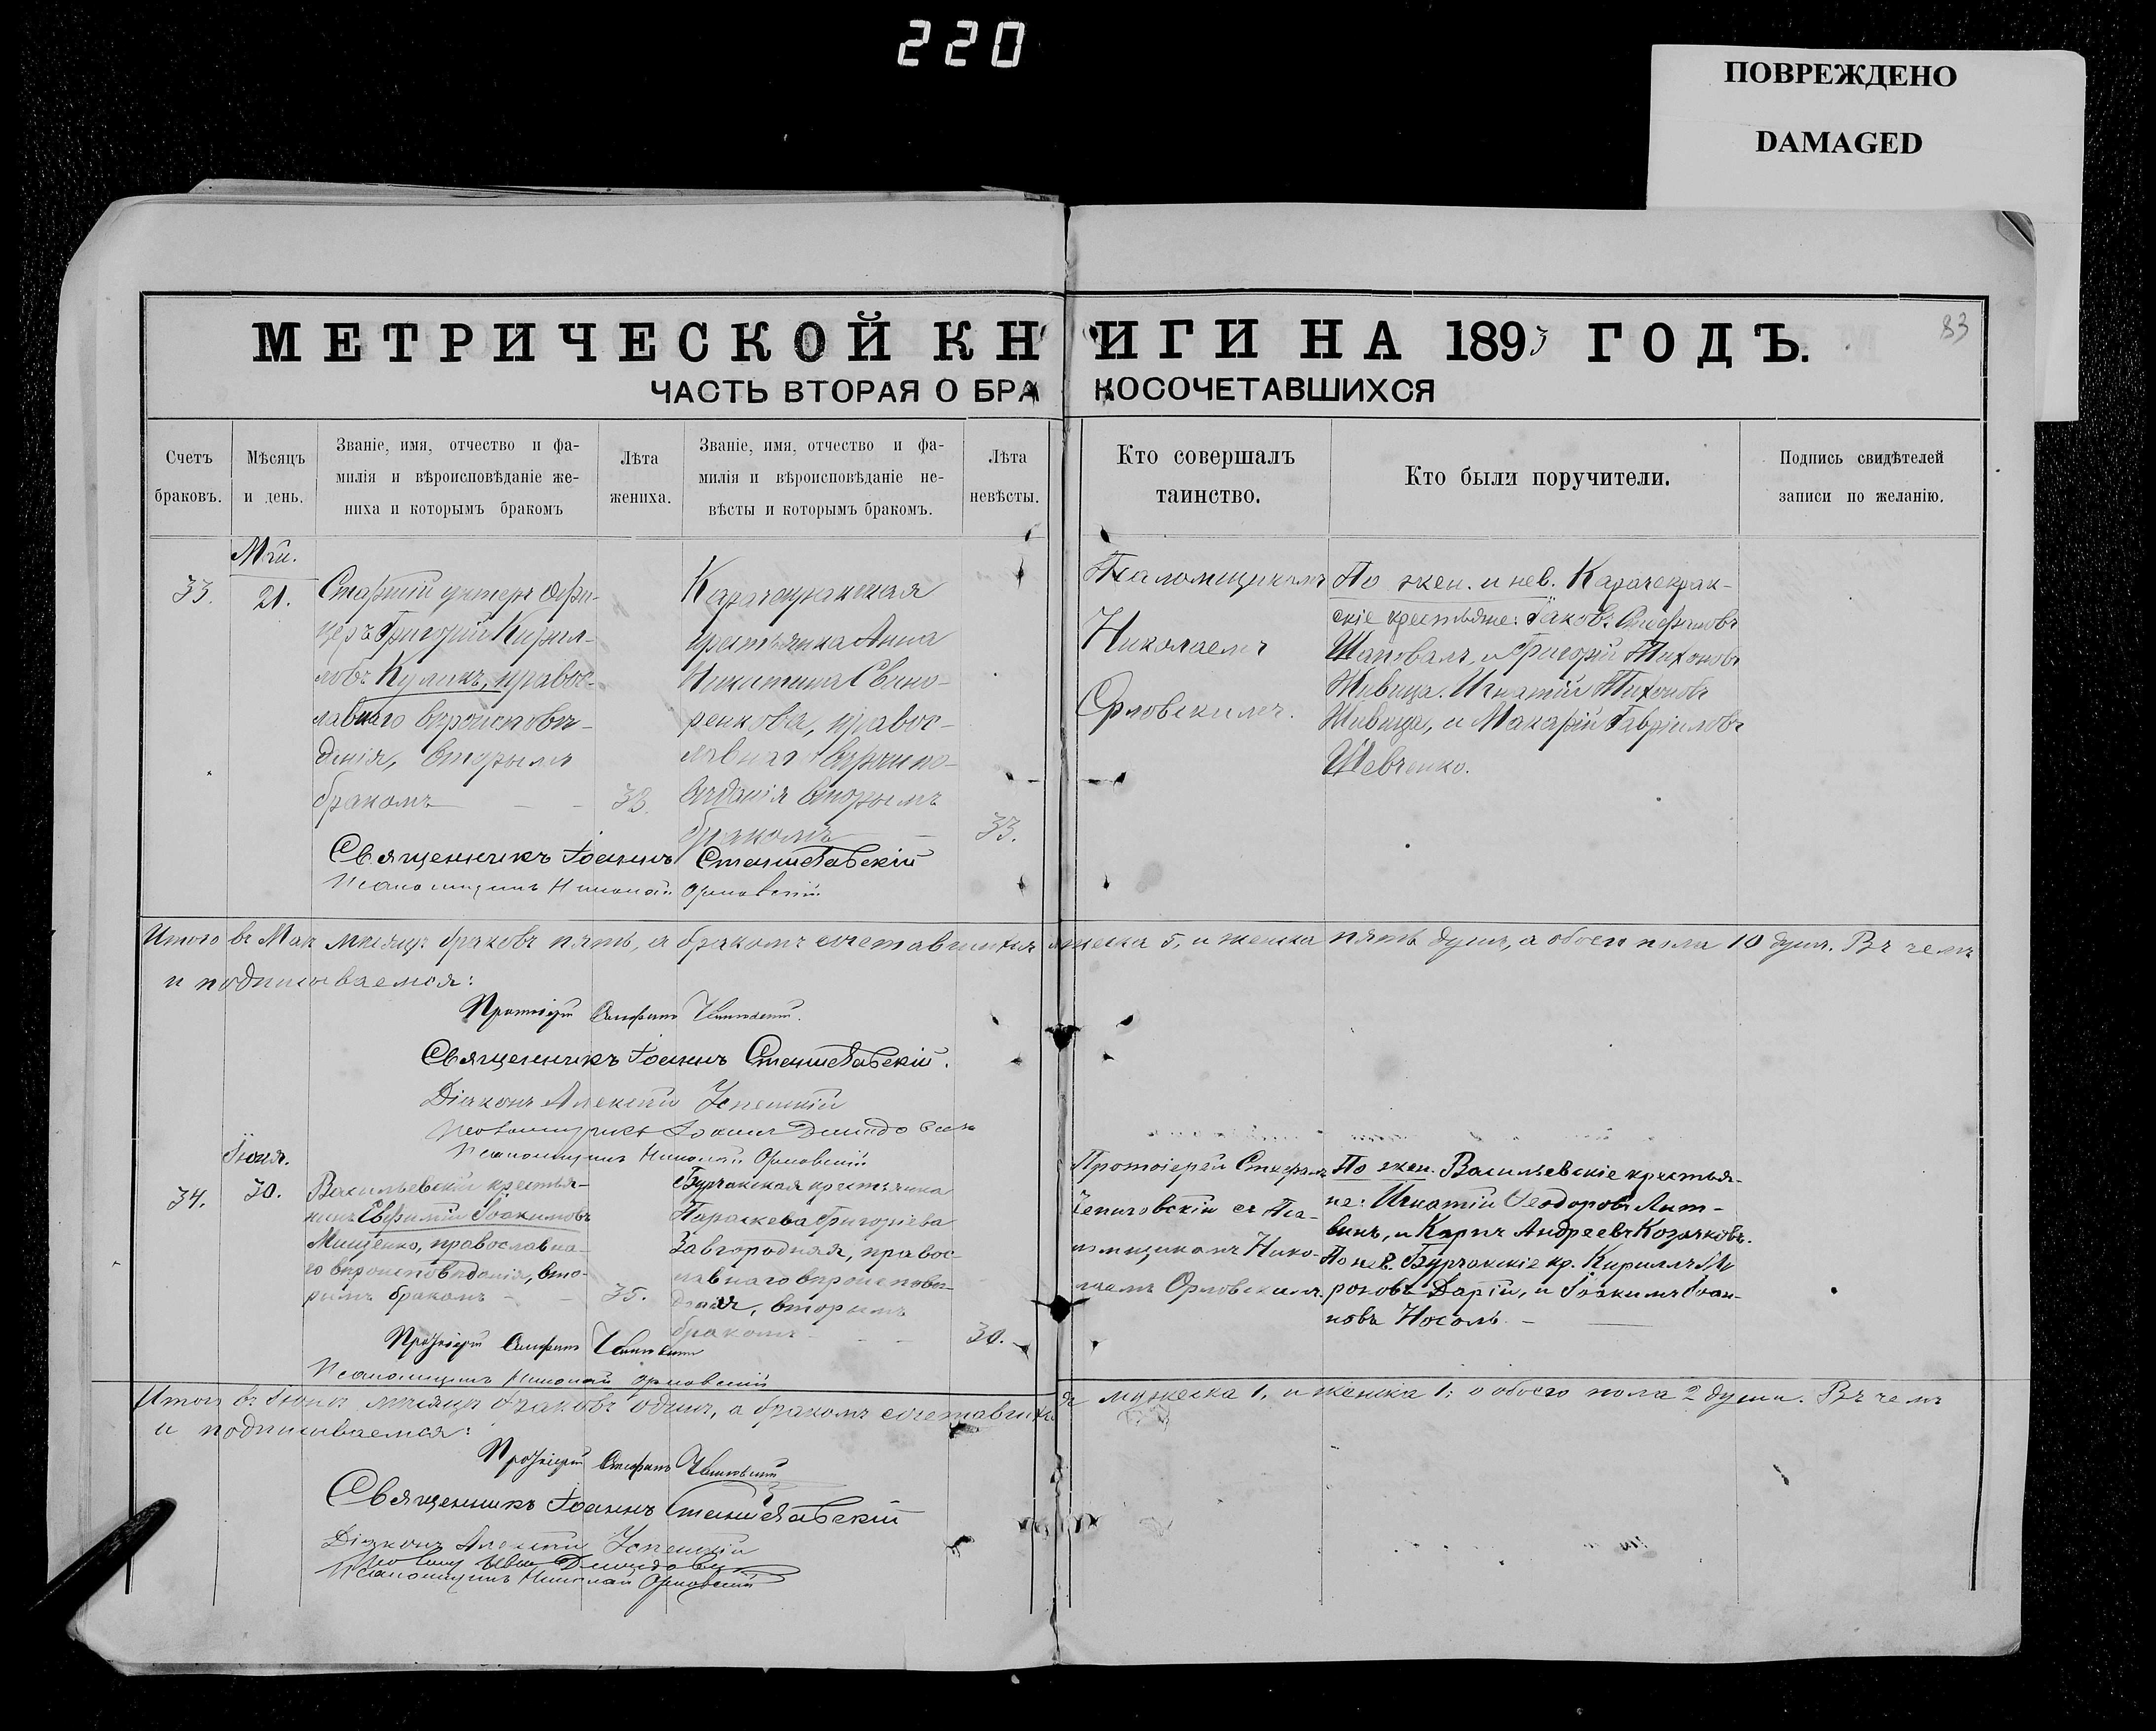 220
ПОВРЕЖДЕНО
DAMAGED
83
МЕТРИЧЕСКОЙ КНИГИ НА 1893 ГОДЪ.
ЧАСТЬ ВТОРАЯ О БРАКОСОЧЕТАВШИХСЯ
Счетъ
браковъ.
Мѣсяцъ
и день.
Званіе, имя, отчество и фа-
милія и вѣроисповѣданіе же-
ниха и которымъ бракомъ
Лѣта
жениха.
Званіе, имя, отчество и фа-
милія и вѣроисповѣданіе не-
вѣсты и которымъ бракомъ.
Лѣта
невѣсты.
Кто совершалъ
таинство.
Кто были поручители.
Подпись свидѣтелей
записи по желанію.
33.
Май.
21.
Старшій унтеръ офи-
церъ Григорій Кирил-
ловъ Куликъ, правос-
лавнаго вѣроисповѣ-
данія, вторымъ
бракомъ
33.
Карачекракская
крестьянка Анна
Никитина Свино-
ренкова, правос-
лавнаго вѣроиспо-
вѣданія вторымъ
бракомъ
33.
Псаломщикомъ
Николаемъ
Орловскимъ.
По жен. и нев. Карачекрак-
скіе крестьяне: Іаковъ Стефановъ
Шаповалъ, и Григорій Тихоновъ
Живица. Игнатій Тихоновъ
Живица, и Макарій Гавріиловъ
Шевченко.
Священникъ Іоаннъ Станиславскій
Псаломщикъ Николай Орловскій
Итого въ Маѣ мѣсяцѣ браковъ пять, а бракомъ сочетавшихся мужеска 5, и женска пять душъ, а обоего пола 10 душъ. Въ чемъ
и подписываемся:
Протоіерей Стефанъ
Священникъ Іоаннъ Станиславскій.
Діаконъ Алексій Успенскій
Псаломщикъ Іоаннъ
Псаломщикъ Николай Орловскій
34.
Іюня.
30.
Васильевскій крестья-
нинъ Евфимій Іоакимовъ
Мищенко, православна-
го вѣроисповѣданія, вто-
рымъ бракомъ
35.
Бурчакская крестьянка
Параскева Григоріева
Завгородняя, правос-
лавнаго вѣроисповѣ-
данія, вторымъ
бракомъ
30.
Протоіерей Стефанъ
съ Пса-
ломщикомъ Нико-
лаемъ Орловскимъ.
По жен. Васильевскіе крестья-
не: Игнатій Ѳеодоровъ Лит-
винъ, и Карпъ Андреевъ Козачковъ.
По нев. Бурчакскіе кр. Кириллъ Ми
роновъ Дарій, и Іоакимъ Іоан-
новъ Носоль.
Протоіерей Стефанъ
Псаломщикъ Николай Орловскій
Итого въ Іюнѣ мѣсяцѣ браковъ одинъ, а бракомъ сочетавшихся мужеска 1, и женска 1; а обоего пола 2 души. Въ чемъ
и подписываемся:
Протоіерей Стефанъ
Священникъ Іоаннъ Станиславскій
Діаконъ Алексій Успенскій
Псаломщикъ Николай Орловскій